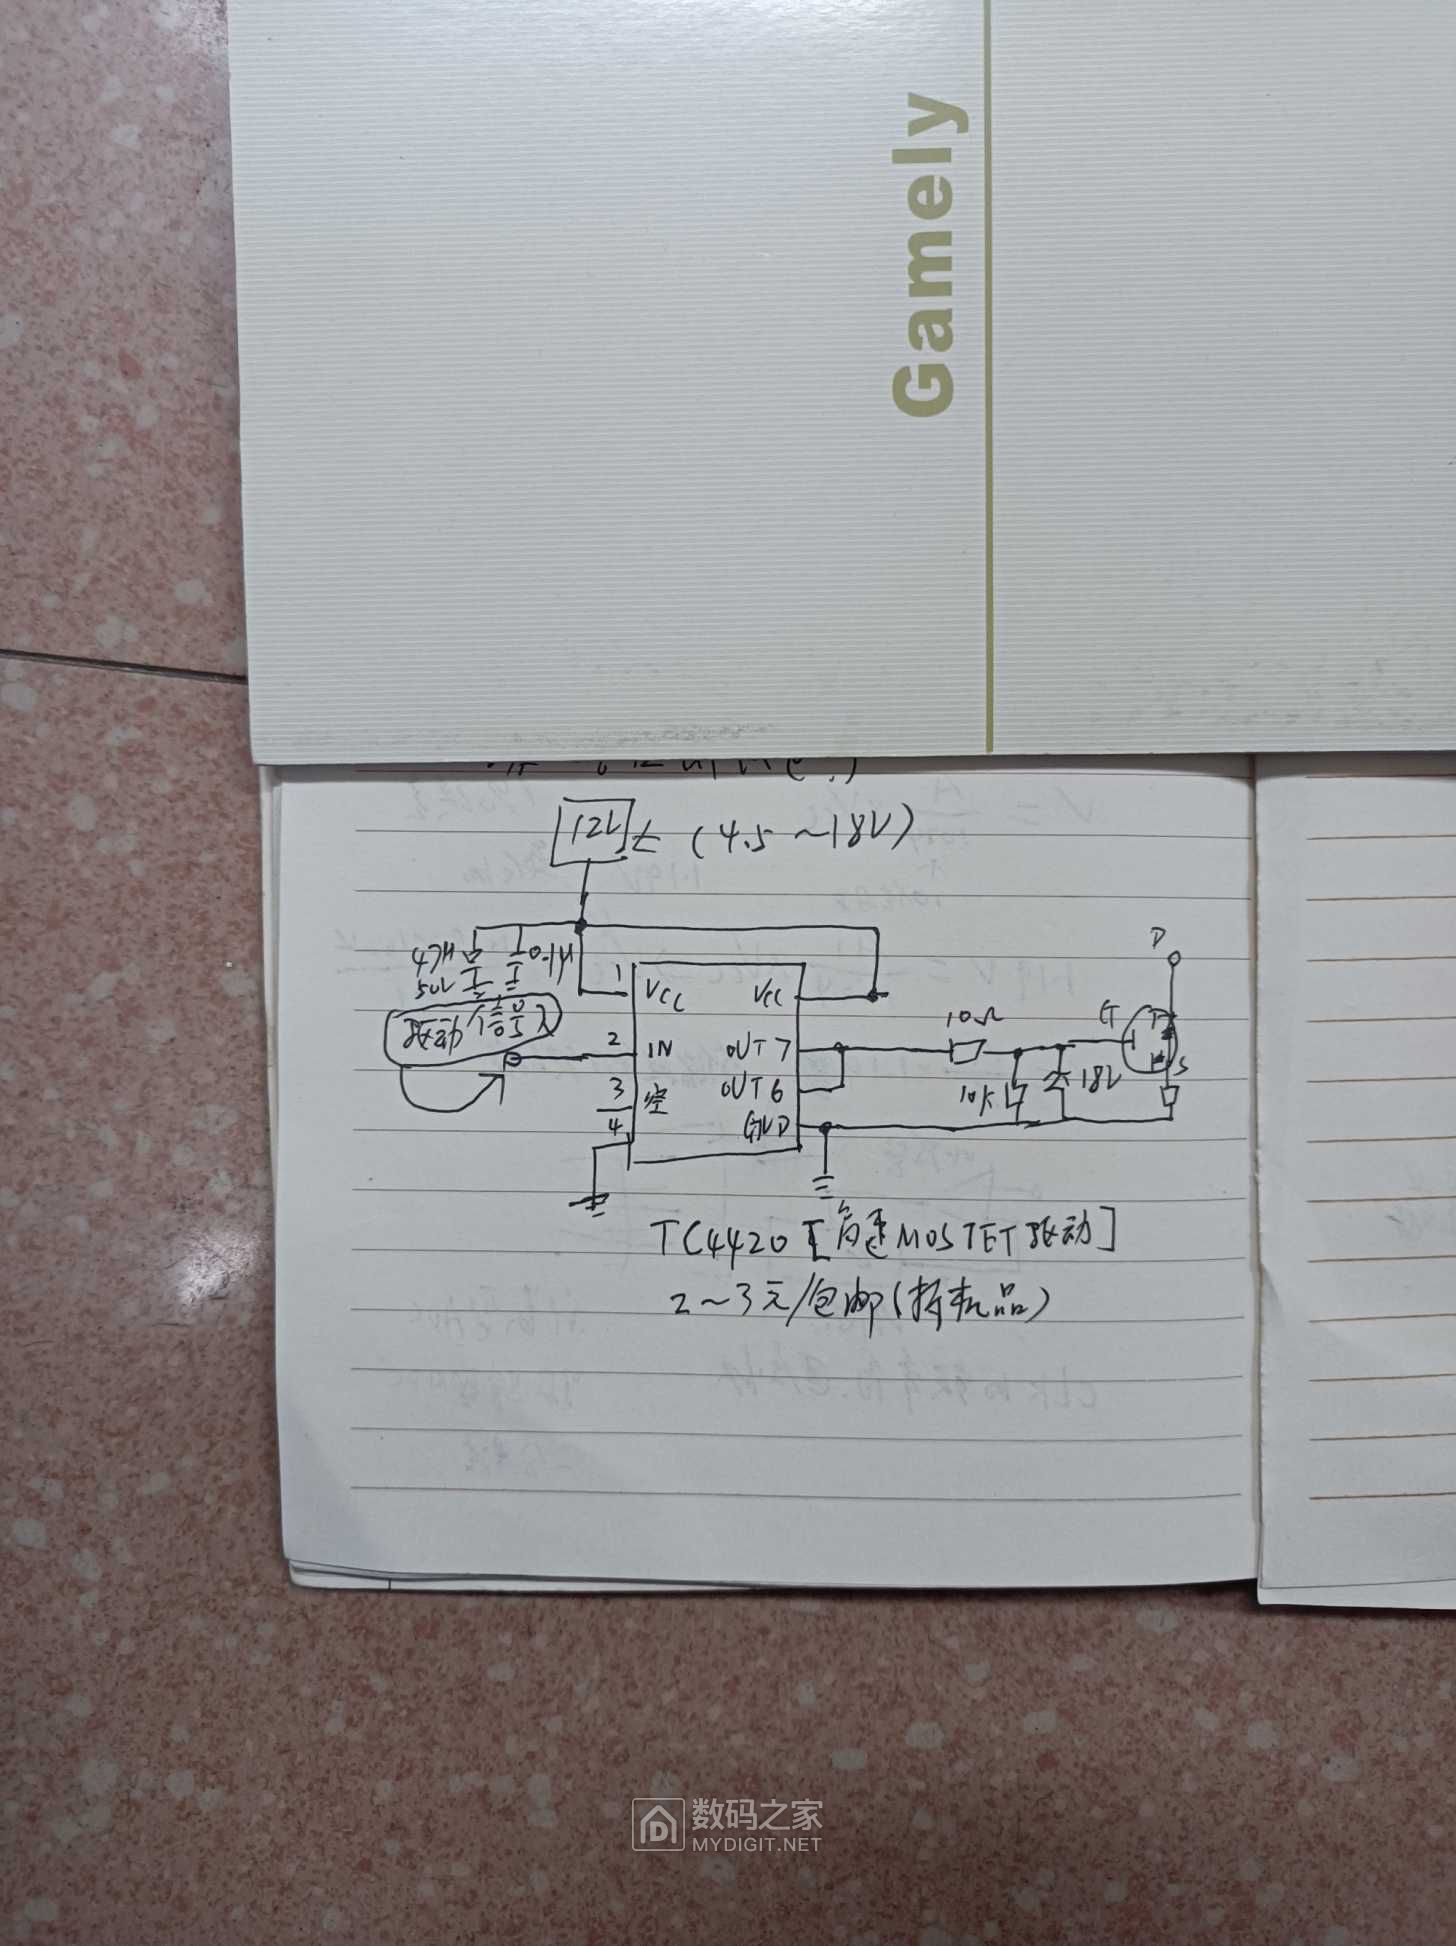 Gamely
12V 士 (4.5~18V)
47μ
50V
0.1μ
驱动信号入
1
VCC
VCC
2
IN
OUT 7
3
空
OUT 6
4
GND
10Ω
10K
18V
G
D
S
TC4420 [高速MOSFET驱动]
2~3元/包邮(拆机品)
数码之家
MYDIGIT.NET